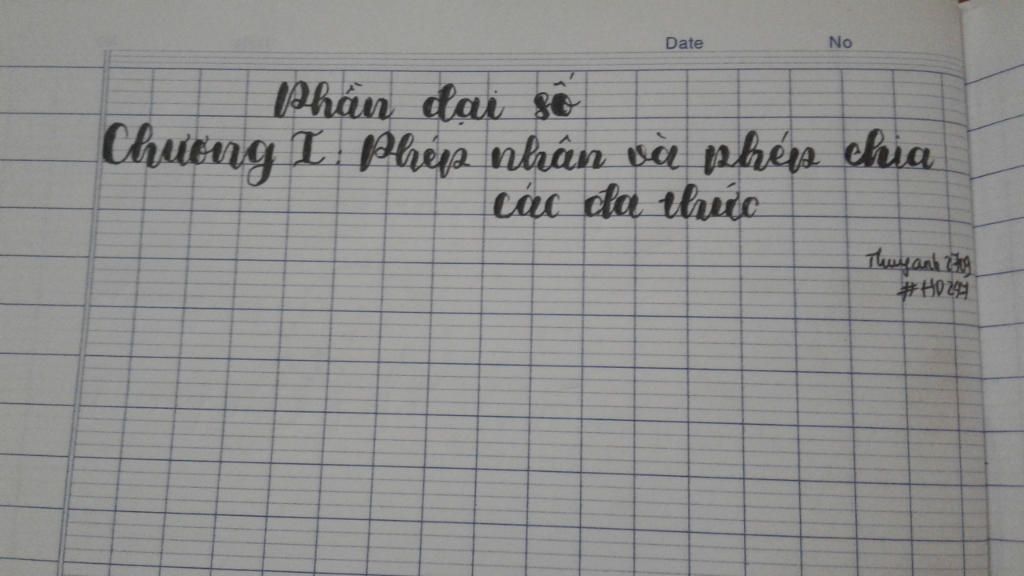 Date No
Phần đại số
Chương I: Phép nhân và phép chia
các đa thức
Thuyanh